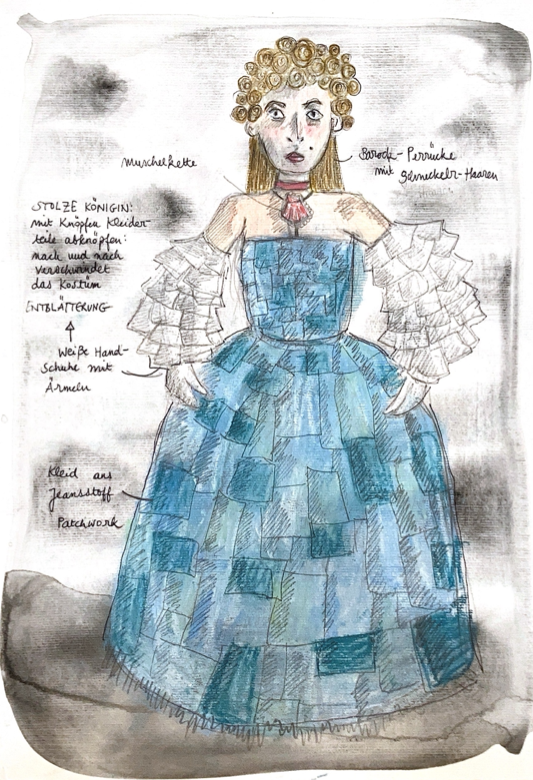 Muschelkette
Barock-Perrücke
mit Schnickelr-Haaren
STOLZE KÖNIGIN:
mit Knöpfen Kleider-
teile abknöpfen:
nach und nach
verschwindet
das Kostüm
ENTBLÄTTERUNG
Weiße Hand-
schuhe mit
Ärmeln
Kleid aus
Jeansstoff
Patchwork